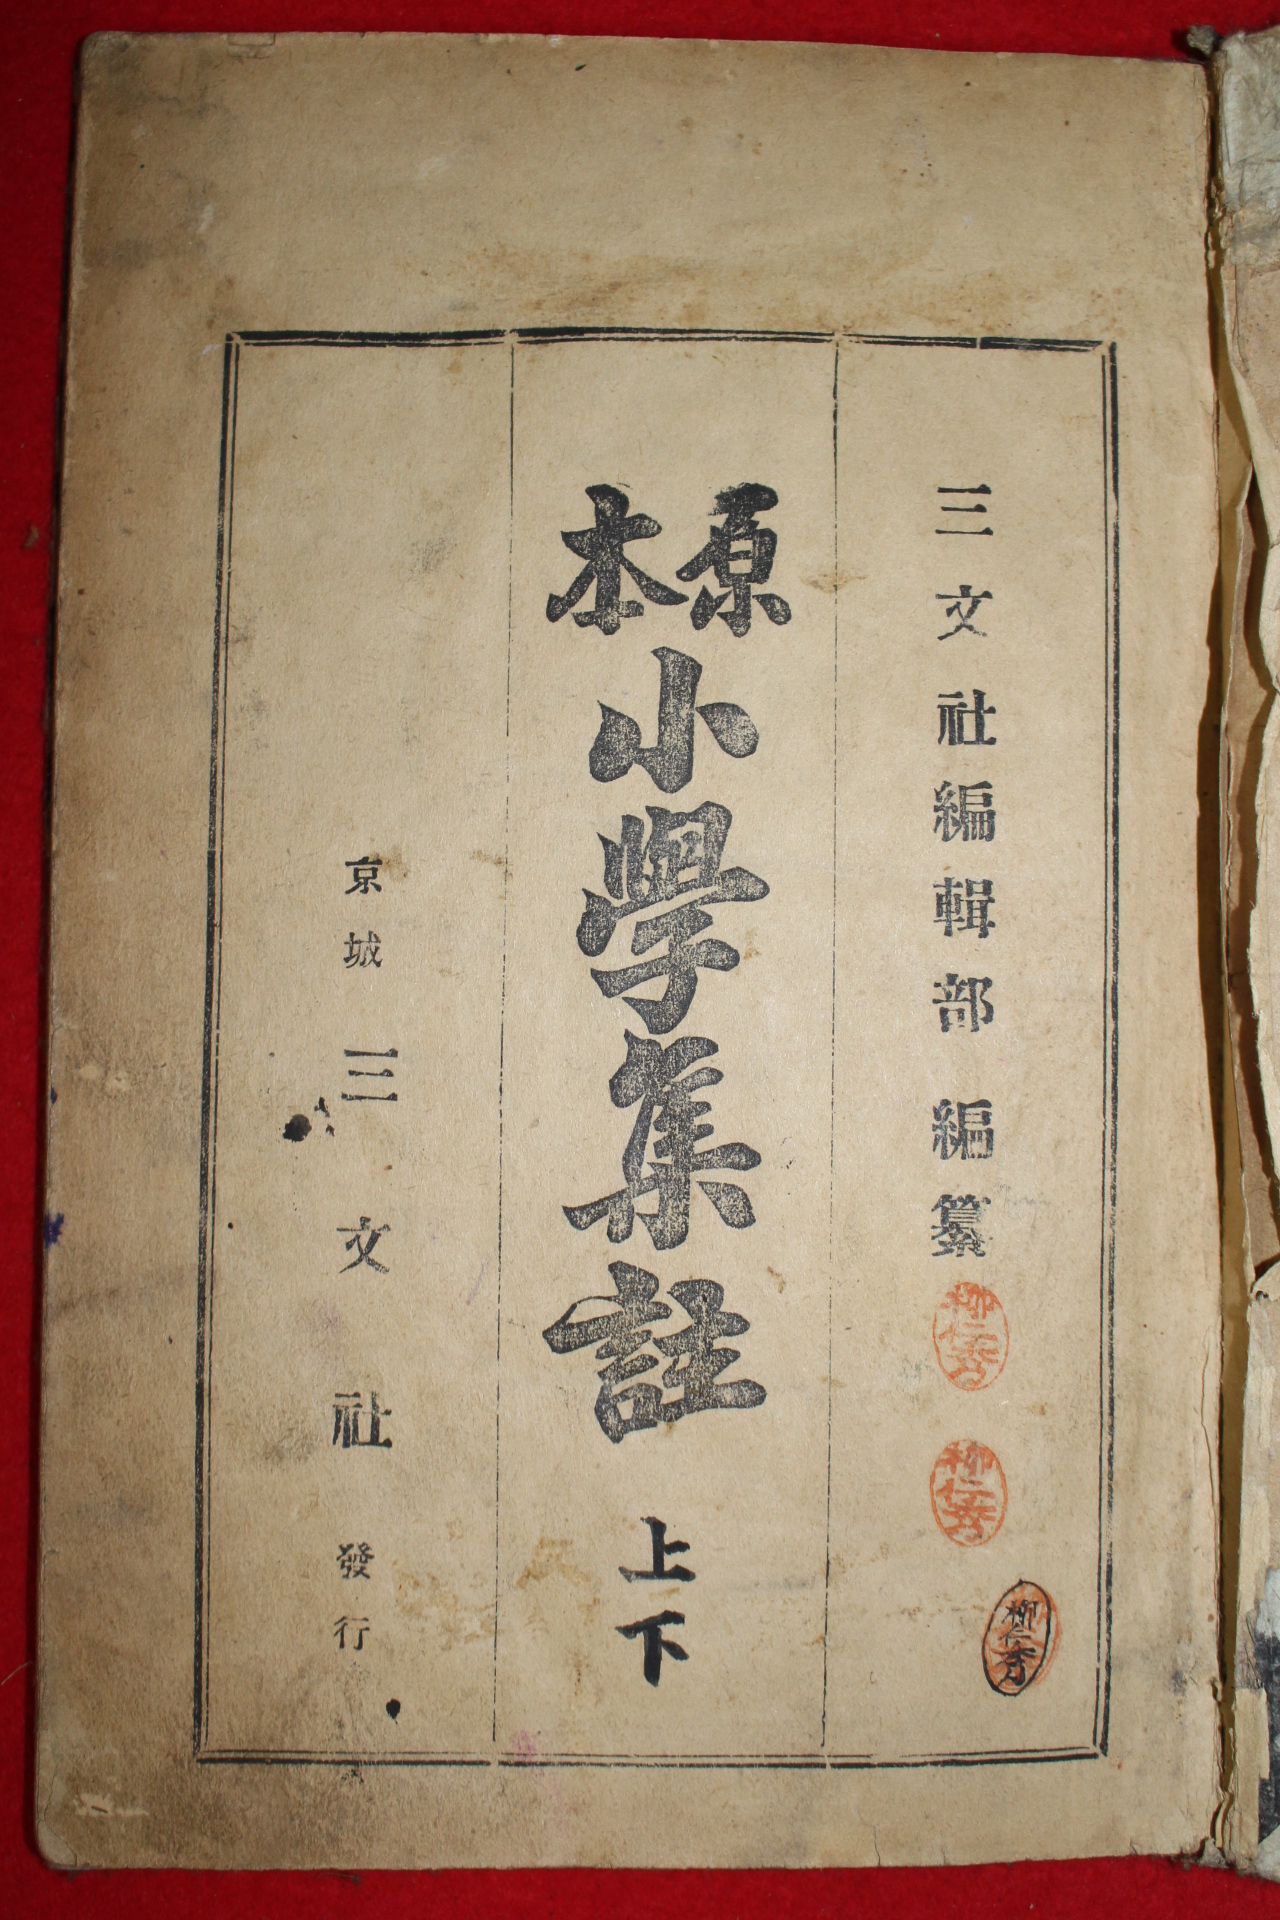 三文社編輯部 編纂
原本 小學集註 上下
京城 三文社 發行
柳仁秀
柳仁秀
柳仁秀